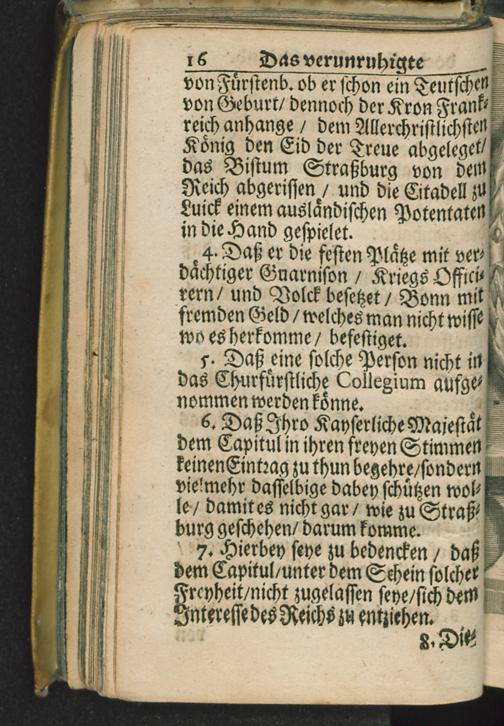 16 Das verunruhigte
von Fürstenb. ob er schon ein Teutschen
von Geburt/ dennoch der Kron Frank-
reich anhange / dem Allerchristlichsten
König den Eid der Treue abgeleget/
das Bistum Straßburg von dem
Reich abgerissen / und die Citadell zu
Luick einem ausländischen Potentaten
in die Hand gespielet.
4. Daß er die festen Plätze mit ver-
dächtiger Guarnison / Kriegs Offici-
rern/ und Volck besetzet / Bonn mit
fremden Geld / welches man nicht wisse
wo es herkomme / befestiget.
5. Daß eine solche Person nicht in
das Churfürstliche Collegium aufge-
nommen werden könne.
6. Daß Ihro Kayserliche Majestät
dem Capitul in ihren freyen Stimmen
keinen Eintrag zu thun begehre/sondern
vielmehr dasselbige dabey schützen wol-
le / damit es nicht gar / wie zu Straß-
burg geschehen/ darum komme.
7. Hierbey seye zu bedencken / daß
dem Capitul/unter dem Schein solcher
Freyheit/nicht zugelassen seye/sich dem
Interesse des Reichs zu entziehen.
8. Die-